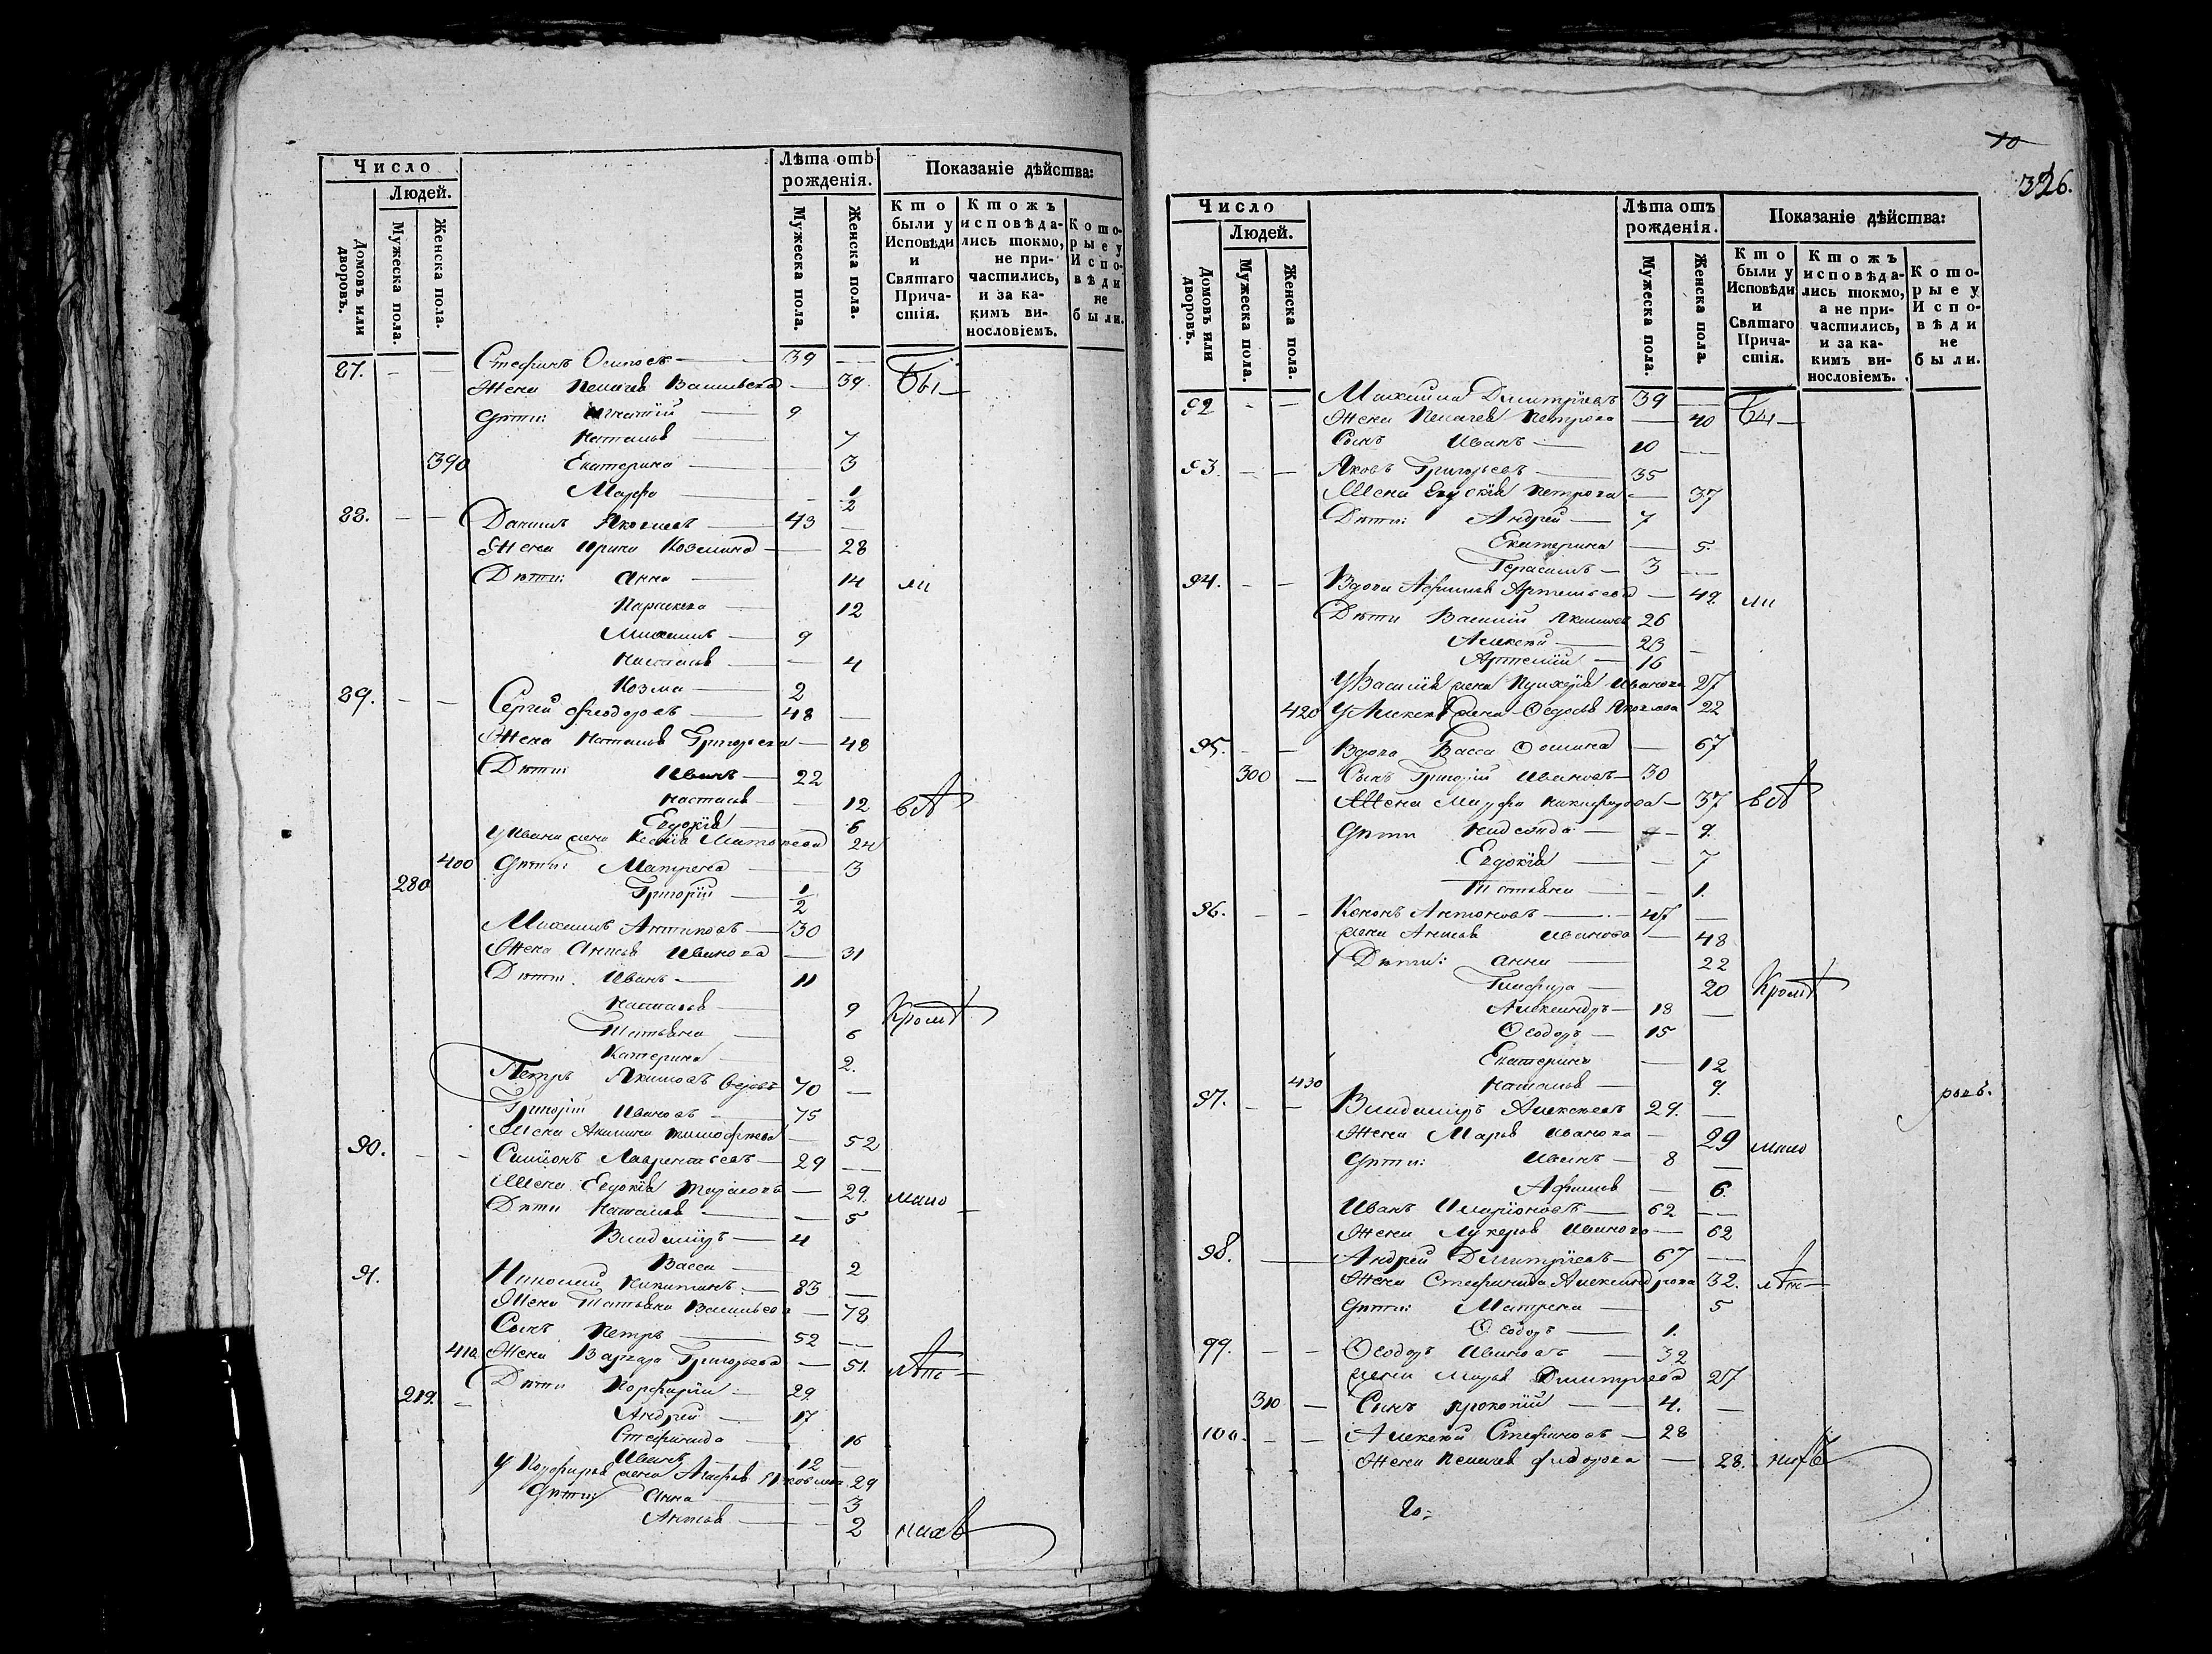 Число
Людей.
Домовъ или дворовъ.
Мужеска пола.
Женска пола.
Лѣта отъ рожденія.
Мужеска пола.
Женска пола.
Показаніе дѣйства:
Кто были у Исповѣди и Святаго Причастія.
Ктожъ исповѣдались токмо, не причастились, и за какимъ винословіемъ.
Которые у Исповѣди не были.
87. Стефанъ Осиповъ 39
Жена Пелагея Васильева 39. Бы
Дѣти: Игнатій 9
Наталья 7
390 Екатерина 3
Марфа 1/2
88. Даніилъ Яковлевъ 43
Жена Ирина Козмина 28
Дѣти: Анна 14 ли
Параскева 12
Михаилъ 9
Наталья 4
Козма 2
89. Сергій Феодоровъ 48
Жена Наталья Григорьева 48
Дѣти: Иванъ 22
Настасья 12 всѣ
Евдокія 6
У Ивана жена Ксенія 24
400 Дѣти: Матрена 3
280 Григорій 1/2
Михаилъ Антиповъ 30
Жена Анисья Иванова 31
Дѣти. Иванъ 11
Наталья 9 Кромѣ
Татьяна 6
Катерина 2.
Петръ Якимовъ 70
Григорій Ивановъ 75
Жена Акилина Тимофеева 52
90. Симеонъ Лаврентьевъ 29
Жена Евдокія Тарасова 29. мало
Дѣти Наталья 5
Владиміръ 4
Васса 2
91. Николай Никитинъ 83
Жена Татьяна Васильева 78
Сынъ Петръ 52
410. Жена Варвара Григорьева 51. лѣт
219. Дѣти Порфирій 29.
Андрей 17
Стефанида 16
Иванъ 12
У Порфирія жена Яковлева 29
Дѣти: Анна 3
Анисья 2 нихъ
10
326.
Число
Людей.
Домовъ или дворовъ.
Мужеска пола.
Женска пола.
Лѣта отъ рожденія.
Мужеска пола.
Женска пола.
Показаніе дѣйства:
Кто были у Исповѣди и Святаго Причастія.
Ктожъ исповѣдались токмо, а не причастились, и за какимъ винословіемъ.
Которые у Исповѣди не были.
92 Михаилъ Димитріевъ 39
Жена Пелагея Петрова 40 Бы
Сынъ Иванъ 10
93. Яковъ Григорьевъ 35
Жена Евдокія Петрова 37
Дѣти: Андрей 7
Екатерина 5.
Герасимъ 3
94. Вдова Афимья Артемьева 49. ли
Дѣти Василій Якимовъ 26
Алексѣй 23
Артемій 16
У Василія жена Пулхерія Иванова 27
420 У Алексѣя жена Ѳедосья Яковлева 22
95. Вдова Васса Ѳомина 67
300 Сынъ Григорій Ивановъ 30
Жена Марфа Никифорова 37 всѣ
Дѣти 9.
Евдокія 7
Татьяна 1.
96. Кононъ Антоновъ 47
жена Анисья Иванова 48
Дѣти: Анна 22
Глафира 20 Кромѣ
Александръ 18
Ѳеодоръ 15
Екатерина 12
430 Наталья 9.
97. Владиміръ Алексѣевъ 29.
Жена Марья Иванова 29 мало
Дѣти: Иванъ 8
Афимья 6.
Иванъ Иларіоновъ 62
Жена Лукерья Иванова 62
98. Андрей Димитріевъ 67
Жена Стефанида Александрова 32. лѣт
Дѣти: Матрена 5
Ѳеодоръ 1.
99. Ѳеодоръ Ивановъ 32
жена Марья Димитріева 27
310 Сынъ Прокопій 4.
100. Алексѣй Стефановъ 28
Жена Пелагея Федорова 28. нихъ